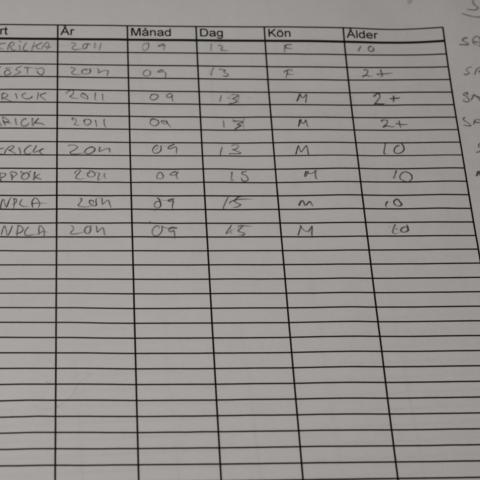 rt År Månad Dag Kön Ålder
ERICKA 2011 09 12 F 10
OSTO 2011 09 13 F 2+
RICK 2011 09 13 M 2+
RICK 2011 09 13 M 2+
ERICK 2011 09 13 M 10
PPÖK 2011 09 15 M 10
NPLA 2011 09 15 M 10
NPLA 2011 09 15 M 10